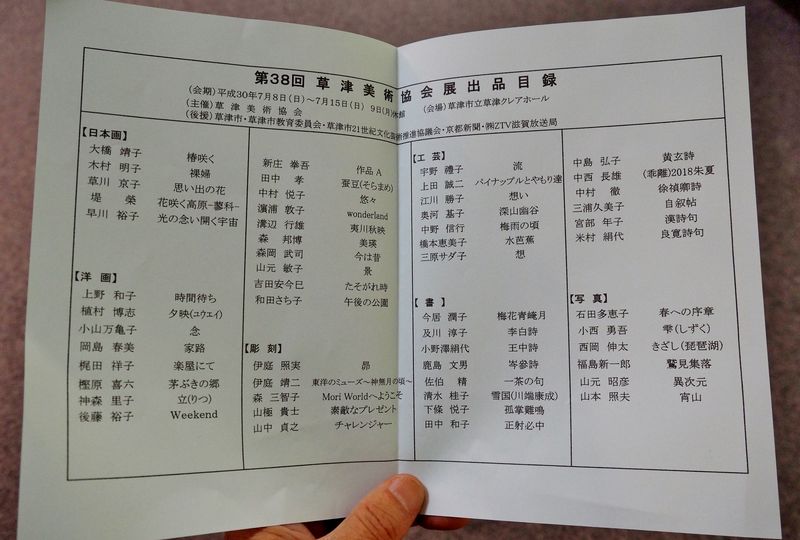 第38回 草津美術協会展出品目録
(会期)平成30年7月8日(日)～7月15日(日) 9日(月)休館 (会場)草津市立草津クレアホール
(主催)草津美術協会
(後援)草津市・草津市教育委員会・草津市21世紀文化芸術推進協議会・京都新聞・㈱ZTV滋賀放送局
【日本画】
大橋 靖子 椿咲く
木村 明子 裸婦
草川 京子 思い出の花
堤 榮 花咲く高原-蓼科-
早川 裕子 光の念い開く宇宙
【洋 画】
上野 和子 時間待ち
植村 博志 夕映(ユウエイ)
小山万亀子 念
岡島 春美 家路
梶田 祥子 楽屋にて
樫原 喜六 茅ぶきの郷
神森 里子 立(りつ)
後藤 裕子 Weekend
新庄 拳吾 作品A
田中 孝 蚕豆(そらまめ)
中村 悦子 悠々
濵浦 敦子 wonderland
溝辺 行雄 夷川秋映
森 邦博 美瑛
森岡 武司 今は昔
山元 敏子 景
吉田安今巳 たそがれ時
和田さち子 午後の公園
【彫 刻】
伊庭 照実 昴
伊庭 靖二 東洋のミューズ～神無月の頃～
森 三智子 Mori Worldへようこそ
山極 貴士 素敵なプレゼント
山中 貞之 チャレンジャー
【工 芸】
宇野 禮子 流
上田 誠二 パイナップルとやもり達
江川 勝子 想い
奥河 基子 深山幽谷
中野 信行 梅雨の頃
橋本恵美子 水芭蕉
三原サダ子 想
【書】
今居 潤子 梅花青崦月
及川 淳子 李白詩
小野澤絹代 王中詩
鹿島 文男 岑參詩
佐伯 精 一茶の句
清水 桂子 雪国(川端康成)
下條 悦子 孤掌難鳴
田中 和子 正射必中
中島 弘子 黄玄詩
中西 長雄 (乖離)2018朱夏
中村 徹 徐禎卿詩
三浦久美子 自叙帖
宮部 年子 漢詩句
米村 絹代 良寛詩句
【写 真】
石田多恵子 春への序章
小西 勇吾 雫(しずく)
西岡 伸太 きざし(琵琶湖)
福島新一郎 鷲見集落
山元 昭彦 異次元
山本 照夫 宵山